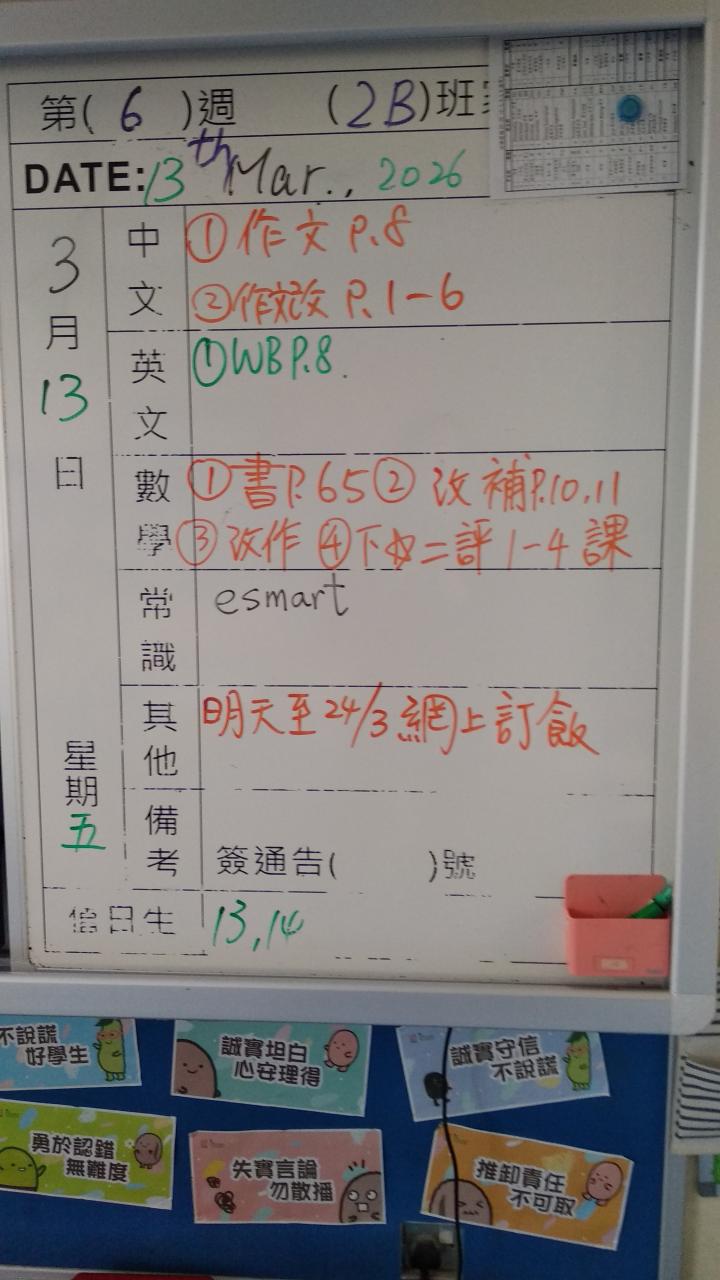 第( 6 )週 (2B)班
DATE: 13th Mar., 2026
3月13日 星期五
中文 ①作文 P.8
②作文改 P.1-6
英文 ①WB P.8.
數學 ①書P.65 ② 改 補P.10,11
③改作 ④下 二評 1-4 課
常識 esmart
其他 明天至24/3網上訂飯
備考 簽通告( )號
值日生 13,14
不說謊
好學生
誠實坦白
心安理得
誠實守信
不說謊
勇於認錯
無難度
失實言論
勿散播
推卸責任
不可取